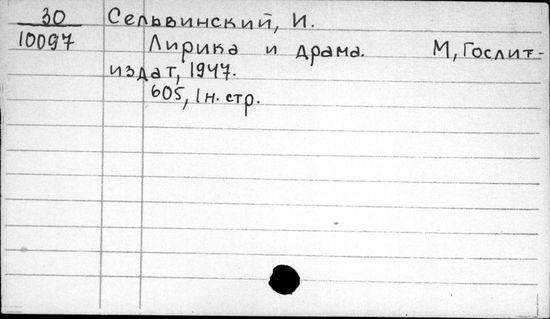 30 Сельвинский, И.
10097 Лирика и драма. М, Гослит-
издат, 1947.
605, 1 н. стр.